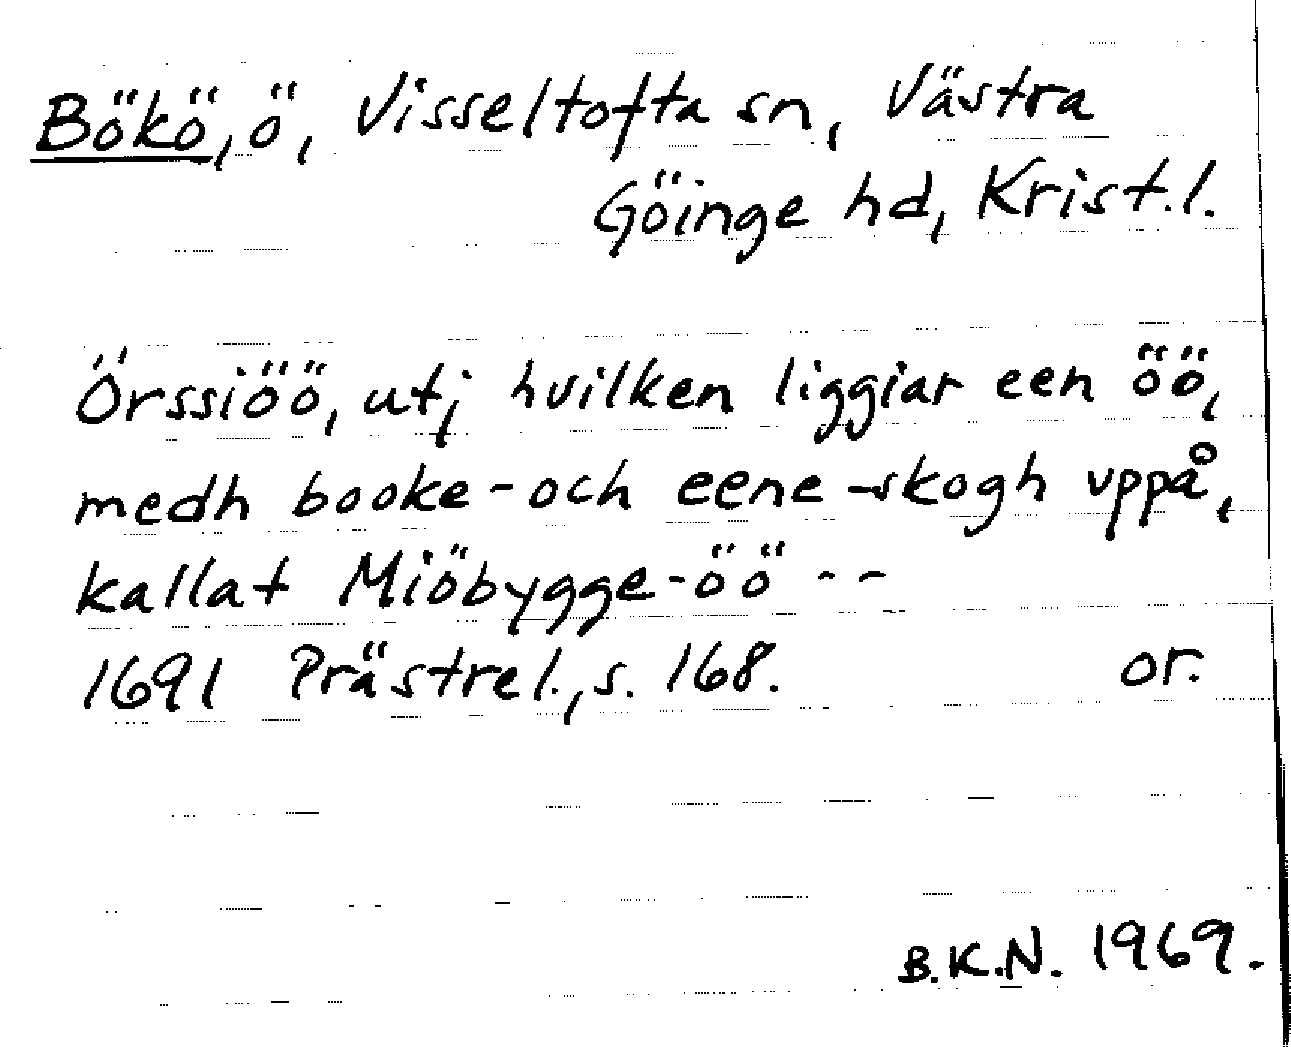 Bökö, ö, Visseltofta sn, Västra
Göinge hd, Krist.l.
Örssiöö, utj hvilken liggiar een öö,
medh booke- och eene-skogh vppå,
kallat Miöbygge-öö - -
1691 Prästrel., s. 168. or.
B.K.N. 1969.